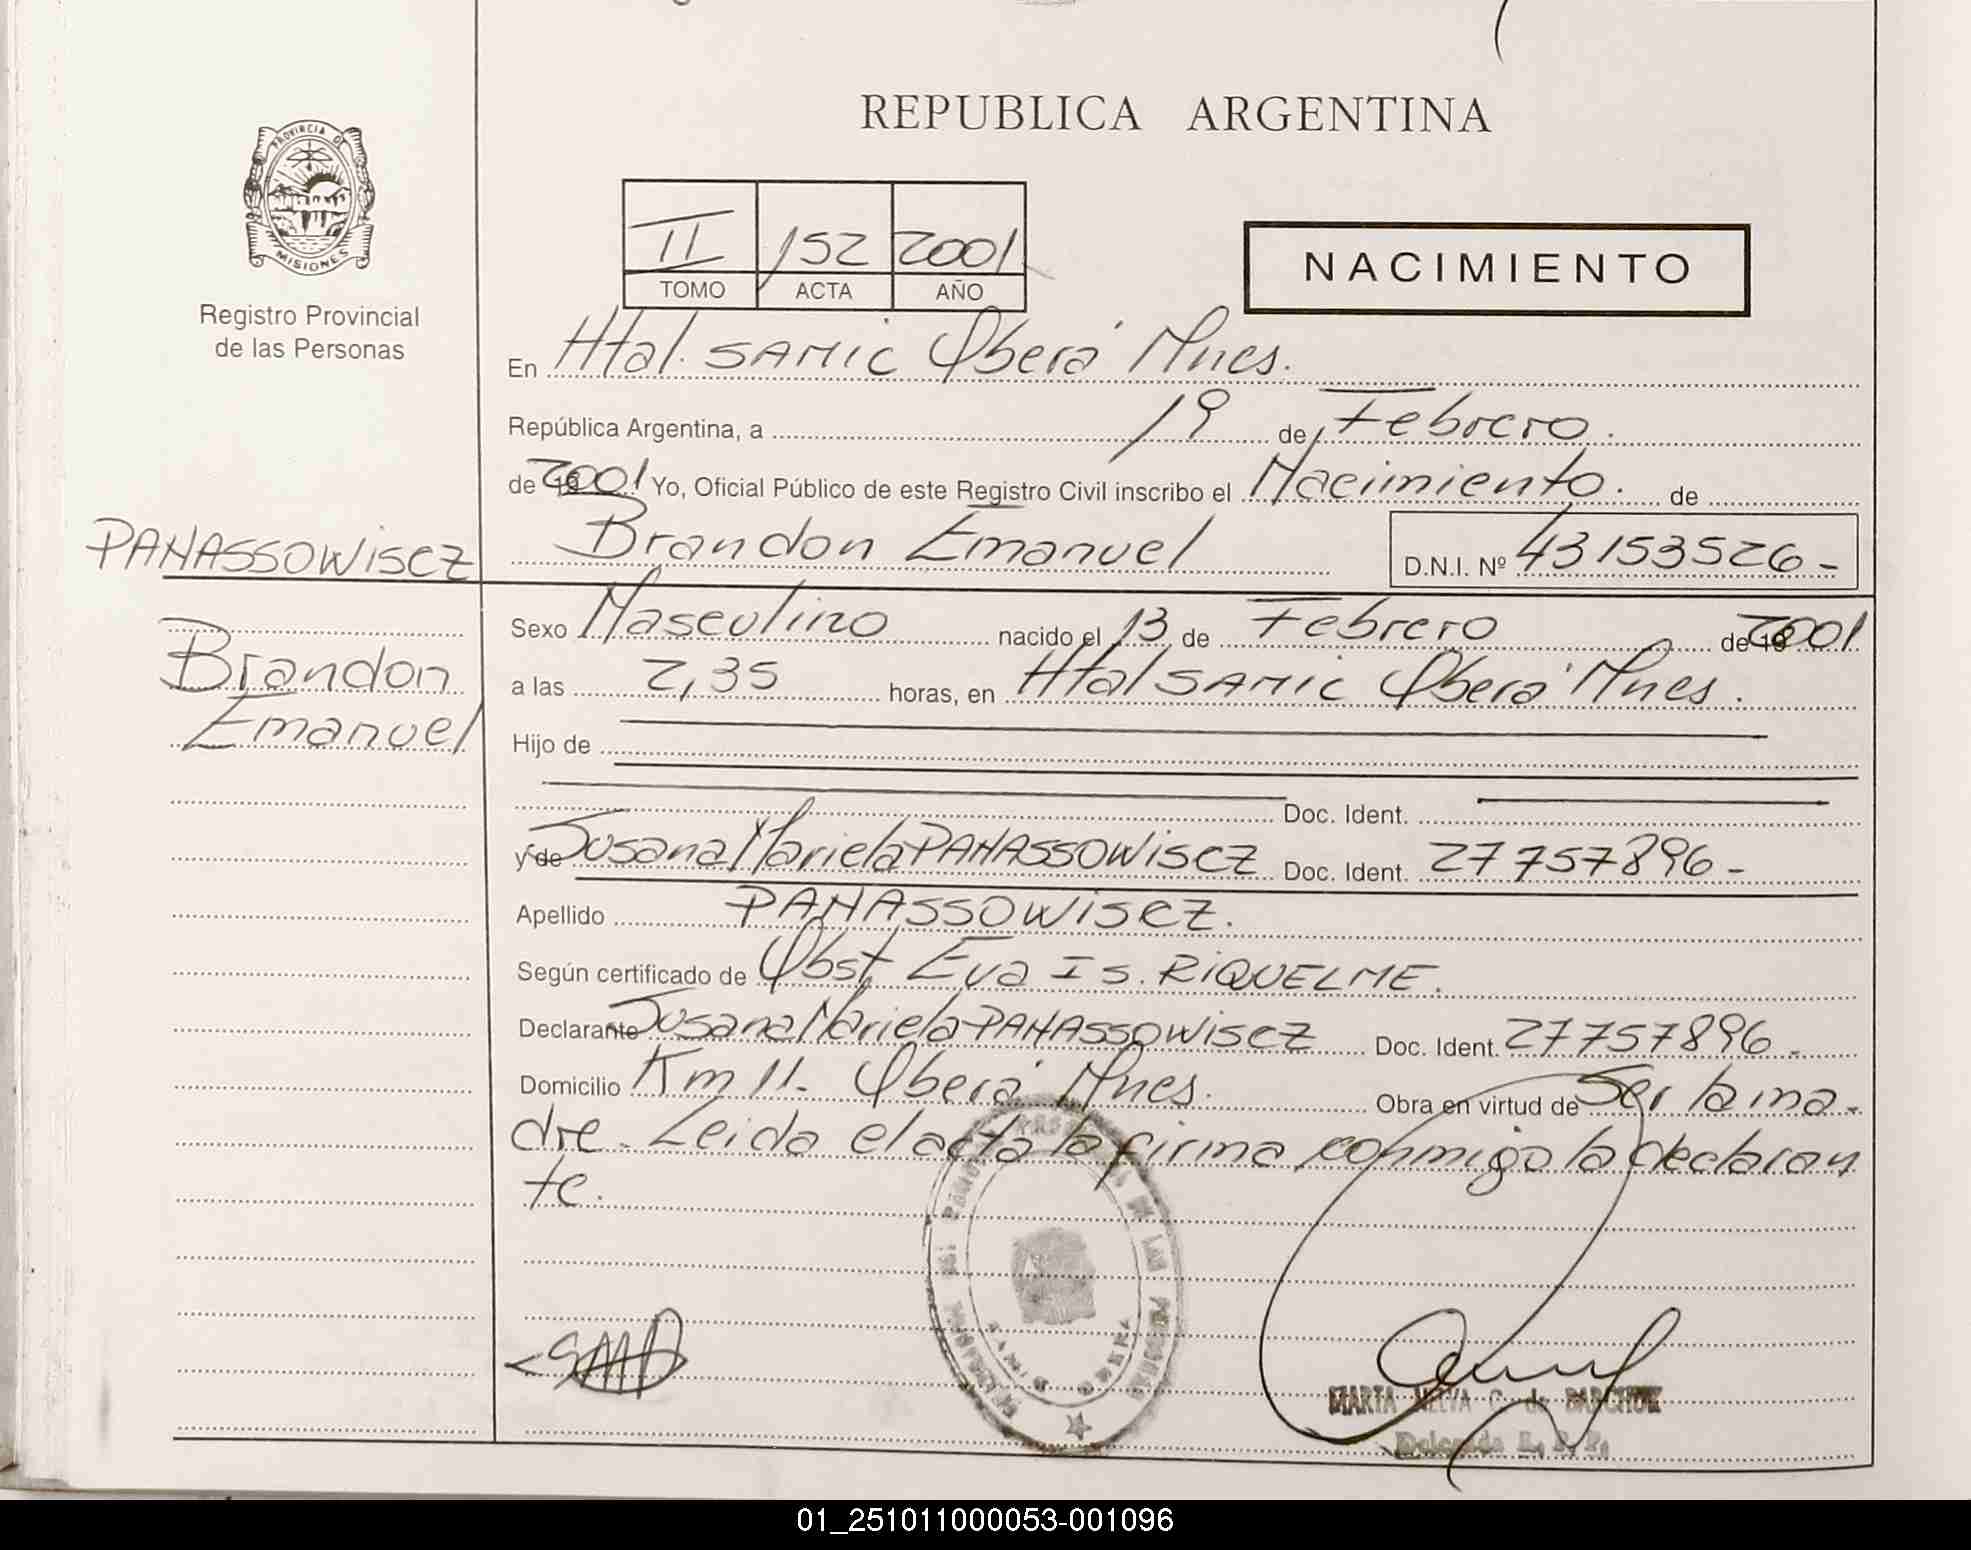 REPUBLICA ARGENTINA
PROVINCIA DE
MISIONES
Registro Provincial
de las Personas
II 152 2001
TOMO ACTA AÑO
NACIMIENTO
En Htal. SAMIC Oberá Mnes.
República Argentina, a 19 de Febrero.
de 2001 Yo, Oficial Público de este Registro Civil inscribo el Nacimiento. de
PANASSOWiSCZ
Brandon Emanuel D.N.I. Nº 43153526-
Brandon
Emanuel
Sexo Masculino nacido el 13 de Febrero de 2001
a las 2,35 horas, en Htal SAMIC Oberá Mnes.
Hijo de
Doc. Ident.
y de Susana Mariela PANASSOWiSCZ Doc. Ident. 27757896-
Apellido PANASSOWiSCZ.
Según certificado de Obst. Eva Is. RiQUELME.
Declarante Susana Mariela PANASSOWiSCZ Doc. Ident. 27757896-
Domicilio Km 11. Oberá Mnes. Obra en virtud de Ser la ma-
dre. Leida el acta la firma conmigo la declaran
te.
MARTA C. de
Delegada R. P. P.
01_251011000053-001096